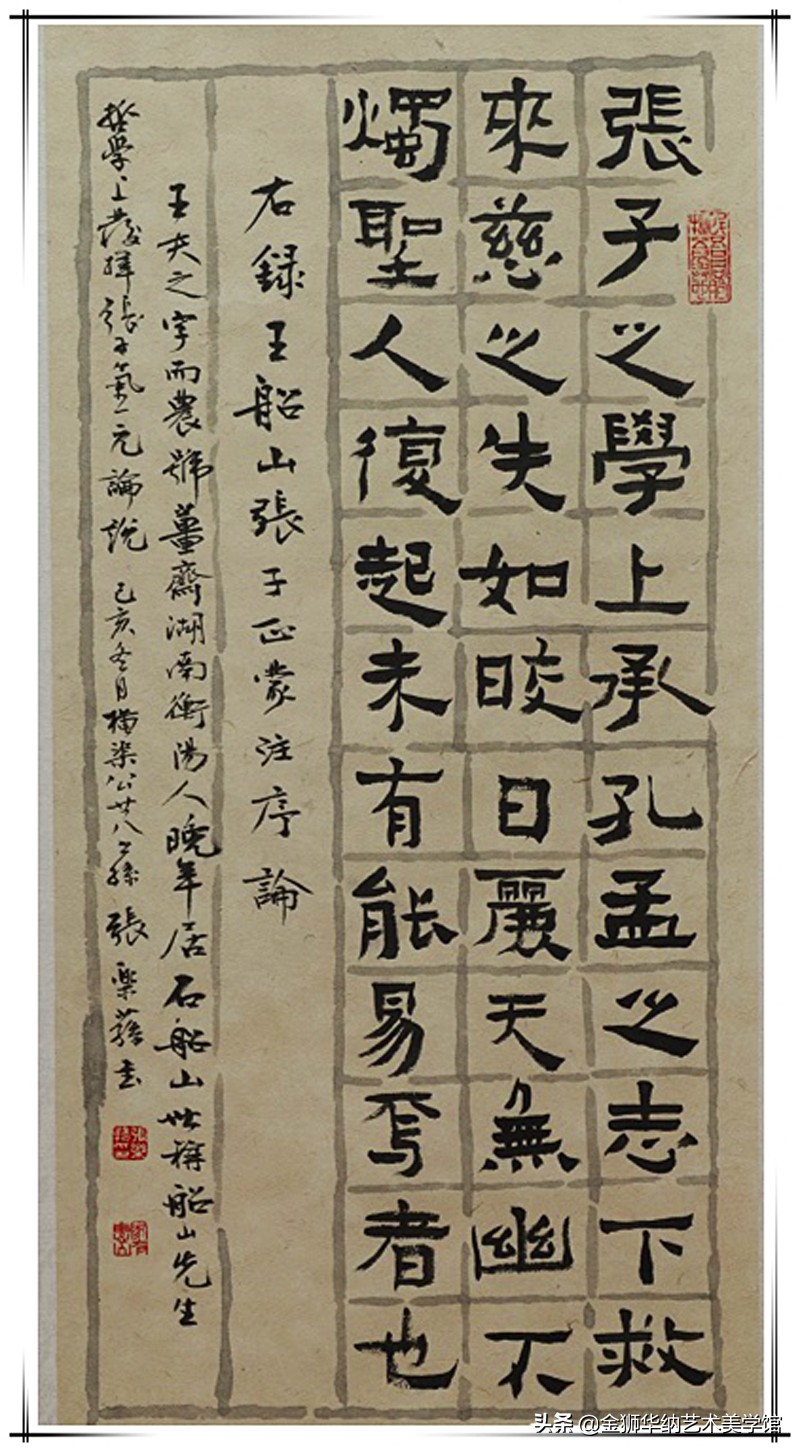 張子之學上承孔孟之志下救
來慈之失如晈日麗天無幽不
燭聖人復起未有能易焉者也
右錄王船山張子正蒙注序論
王夫之字而農號薑齋湖南衡陽人晚年居石船山世稱船山先生
哲学上發揮張子氣一元論說 己亥冬月橫渠公廿八世孫張樂蓀書
头条 @金狮华纳艺术美学馆